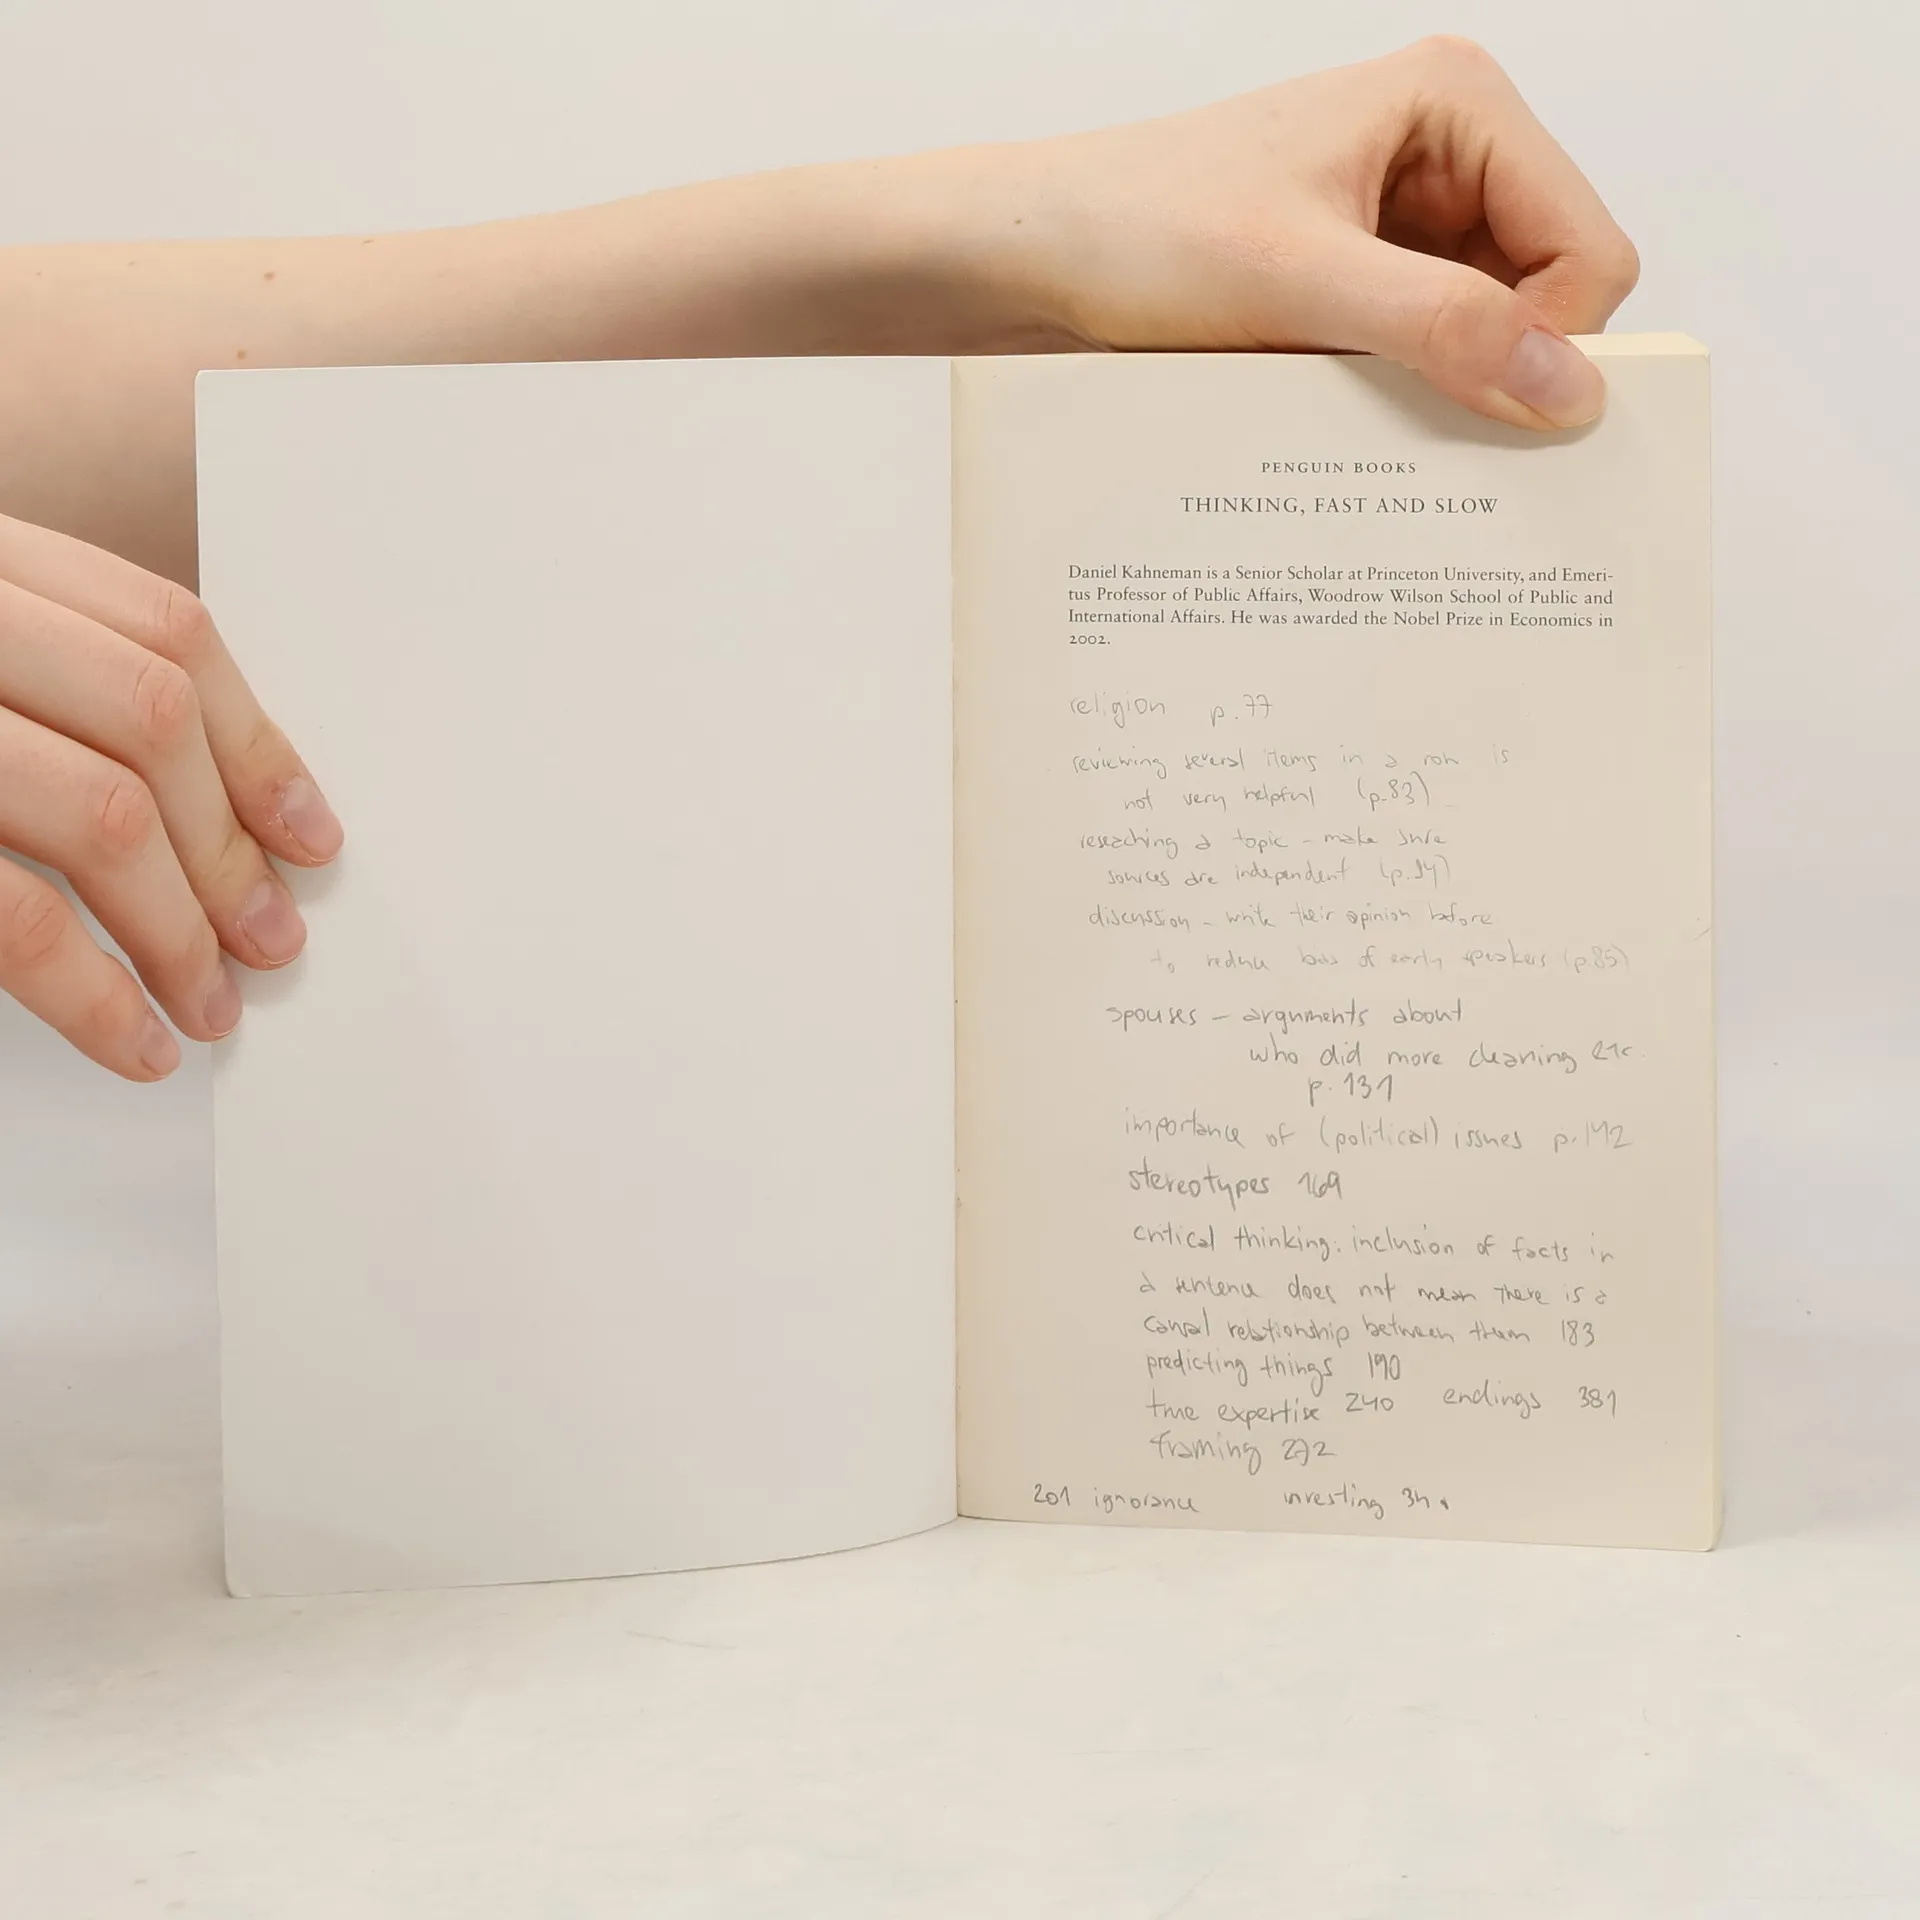 PENGUIN BOOKS
THINKING, FAST AND SLOW
Daniel Kahneman is a Senior Scholar at Princeton University, and Emeri-
tus Professor of Public Affairs, Woodrow Wilson School of Public and
International Affairs. He was awarded the Nobel Prize in Economics in
2002.
religion p.77
reviewing several items in a row is
not very helpful (p.83)
reseaching a topic - make sure
sources are independent
discussion - write their opinion before
to reduce bias of early speakers (p.85)
spouses - arguments about
who did more cleaning etc
p. 131
importance of (political) issues p.142
stereotypes 169
critical thinking: inclusion of facts in
a sentence does not mean there is a
causal relationship between them 183
predicting things 190
true expertise 240 endings 381
framing 272
201 ignorance investing